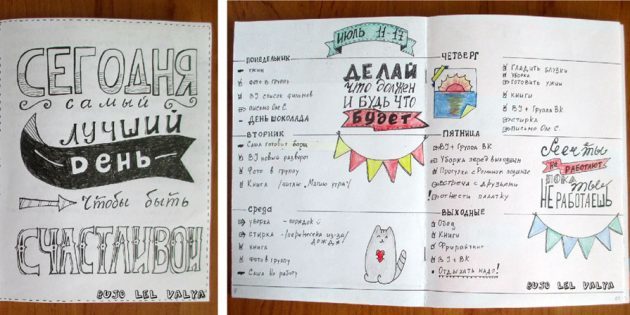 СЕГОДНЯ
самый
ЛУЧШИЙ
DЕНЬ
Чтобы быть
СЧАСТЛИВОЙ
BUJO LEL VALYA
ИЮЛЬ 11-17
ПОНЕДЕЛЬНИК
Фото в группу
BJ список фильмов
письмо Оле С.
ДЕНЬ ШОКОЛАДА
ДЕЛАЙ
ЧТО ДОЛЖЕН
И БУДЬ ЧТО
БУДЕТ
ВТОРНИК
Саша готовит борщ
BJ новый разворот
Фото в группу
Книга
СРЕДА
уборка - порядок
стирка - /перенесена из-за/
дождя
книга
Фото в группу
Саша на работу
ЧЕТВЕРГ
ГЛАДИТЬ БЛУЗКИ
УБОРКА
ГОТОВИТЬ УЖИН
КНИГИ
BJ + Группа ВК
СТИРКА
письмо Оле С.
ПЯТНИЦА
BJ + Группа ВК
Уборка перед выходными
встреча с друзьями
отнести палатку
Если ты
не РАБОТАЮТ
ПОКА
ты
НЕ РАБОТАЕШЬ
ВЫХОДНЫЕ
Обед
Книги
Фрирайтинг
BJ + ВК
ОТДЫХАТЬ НАДО!
BUJO LEL VALYA